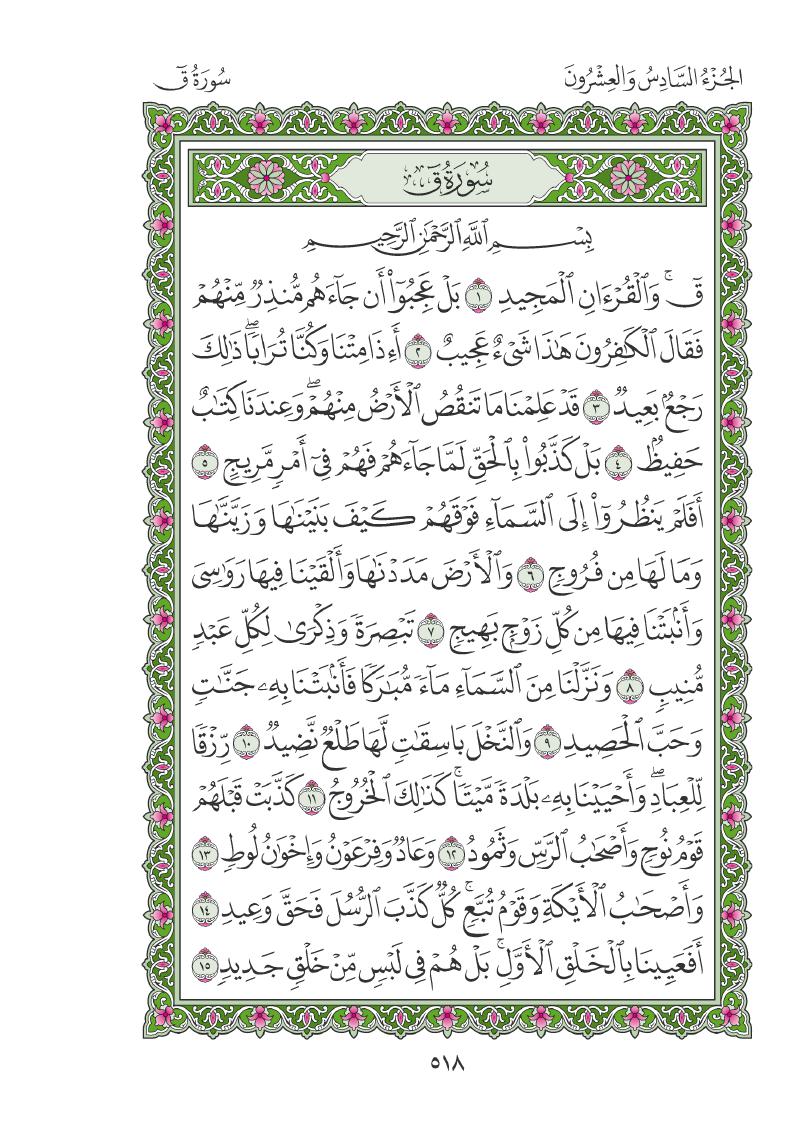 الجُزْءُ السَّادِسُ وَالعِشْرُونَ
سُورَةُ قٓ
سُورَةُ قٓ
بِسْمِ ٱللَّهِ ٱلرَّحْمَٰنِ ٱلرَّحِيمِ
قٓۚ وَٱلْقُرْءَانِ ٱلْمَجِيدِ ١ بَلْ عَجِبُوٓا۟ أَن جَآءَهُم مُّنذِرٌ مِّنْهُمْ
فَقَالَ ٱلْكَٰفِرُونَ هَٰذَا شَىْءٌ عَجِيبٌ ٢ أَءِذَا مِتْنَا وَكُنَّا تُرَابًاۖ ذَٰلِكَ
رَجْعٌۢ بَعِيدٌ ٣ قَدْ عَلِمْنَا مَا تَنقُصُ ٱلْأَرْضُ مِنْهُمْۖ وَعِندَنَا كِتَٰبٌ
حَفِيظٌۢ ٤ بَلْ كَذَّبُوا۟ بِٱلْحَقِّ لَمَّا جَآءَهُمْ فَهُمْ فِىٓ أَمْرٍ مَّرِيجٍ ٥
أَفَلَمْ يَنظُرُوٓا۟ إِلَى ٱلسَّمَآءِ فَوْقَهُمْ كَيْفَ بَنَيْنَٰهَا وَزَيَّنَّٰهَا
وَمَا لَهَا مِن فُرُوجٍ ٦ وَٱلْأَرْضَ مَدَدْنَٰهَا وَأَلْقَيْنَا فِيهَا رَوَٰسِىَ
وَأَنۢبَتْنَا فِيهَا مِن كُلِّ زَوْجٍۭ بَهِيجٍ ٧ تَبْصِرَةً وَذِكْرَىٰ لِكُلِّ عَبْدٍ
مُّنِيبٍ ٨ وَنَزَّلْنَا مِنَ ٱلسَّمَآءِ مَآءً مُّبَٰرَكًا فَأَنۢبَتْنَا بِهِۦ جَنَّٰتٍ
وَحَبَّ ٱلْحَصِيدِ ٩ وَٱلنَّخْلَ بَاسِقَٰتٍ لَّهَا طَلْعٌ نَّضِيدٌ ١٠ رِّزْقًا
لِّلْعِبَادِۖ وَأَحْيَيْنَا بِهِۦ بَلْدَةً مَّيْتًاۚ كَذَٰلِكَ ٱلْخُرُوجُ ١١ كَذَّبَتْ قَبْلَهُمْ
قَوْمُ نُوحٍ وَأَصْحَٰبُ ٱلرَّسِّ وَثَمُودُ ١٢ وَعَادٌ وَفِرْعَوْنُ وَإِخْوَٰنُ لُوطٍ ١٣
وَأَصْحَٰبُ ٱلْأَيْكَةِ وَقَوْمُ تُبَّعٍۚ كُلٌّ كَذَّبَ ٱلرُّسُلَ فَحَقَّ وَعِيدِ ١٤
أَفَعَيِينَا بِٱلْخَلْقِ ٱلْأَوَّلِۚ بَلْ هُمْ فِى لَبْسٍ مِّنْ خَلْقٍ جَدِيدٍ ١٥
٥١٨